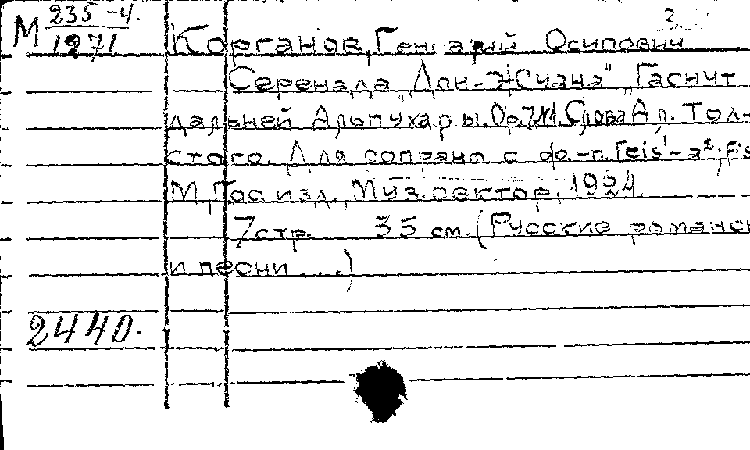 М 235-4
1971
2
Корганов, Геннадий Осипович
Серенада "Дон-Жуана", "Гаснут
дальней Альпухары". Ор. Слова Ал. Тол-
стого. Для сопрано с ф.-п. [eis¹-a²; fis
М., Госизд., Муз. сектор, 1924.
7 стр. 35 см. (Русские романсы
и песни ....)
2440.